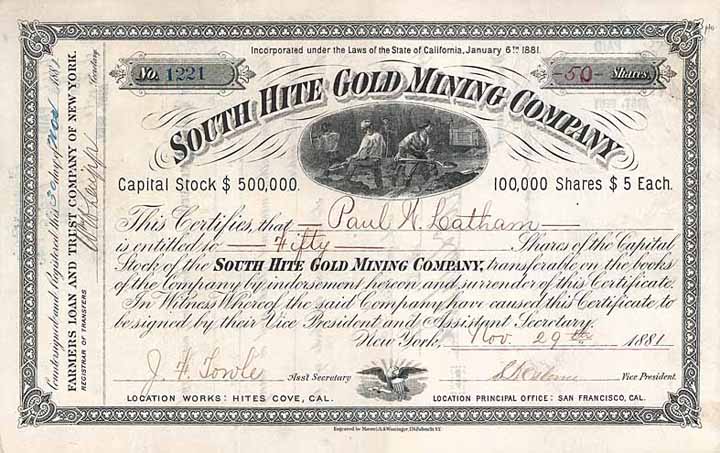 Incorporated under the Laws of the State of California, January 6th 1881.
No. 1221
-50- Shares.
SOUTH HITE GOLD MINING COMPANY
Capital Stock $ 500,000.
100,000 Shares $ 5 Each.
This Certifies, that Paul H. Latham
is entitled to Fifty Shares of the Capital
Stock of the SOUTH HITE GOLD MINING COMPANY, transferable on the books
of the Company by indorsement hereon and surrender of this Certificate.
In Witness Whereof, the said Company have caused this Certificate to
be signed by their Vice President and Assistant Secretary.
New York, Nov. 29th 1881
J. F. Towle Asst Secretary
Vice President.
LOCATION WORKS: HITES COVE, CAL.
LOCATION PRINCIPAL OFFICE: SAN FRANCISCO, CAL.
Countersigned and Registered this 30 day of Nov 1881
FARMERS LOAN AND TRUST COMPANY OF NEW YORK.
REGISTRAR OF TRANSFERS
Secretary